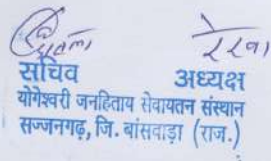 रेखा
सचिव अध्यक्ष
योगेश्वरी जनहिताय सेवायतन संस्थान
सज्जनगढ़, जि. बांसवाड़ा (राज.)